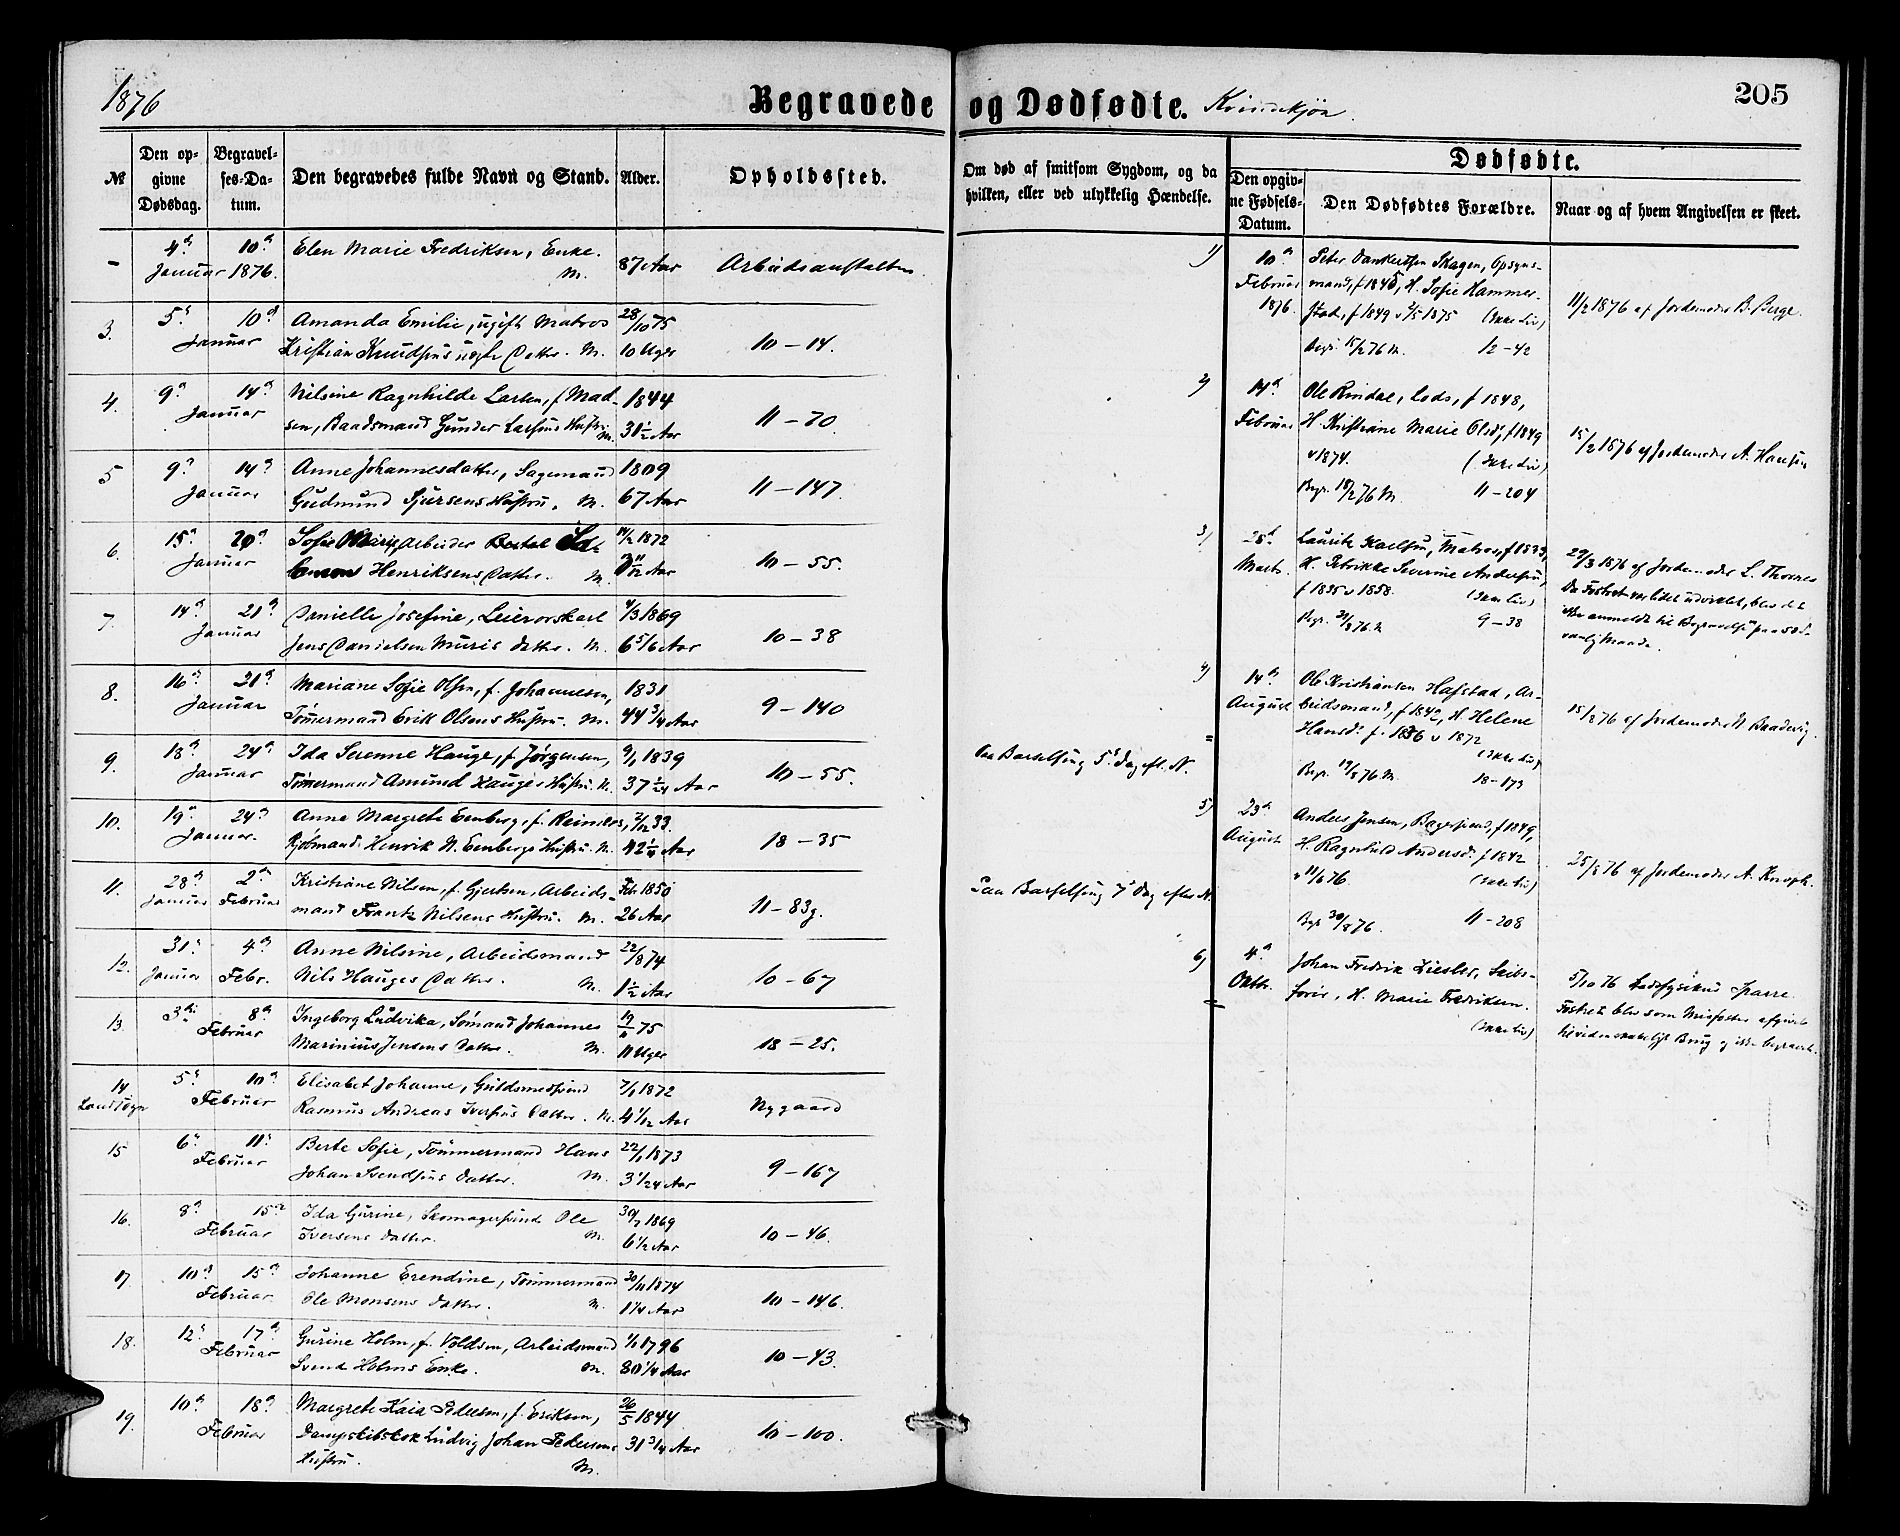 1876
Begravede og Dødfødte. Kvindekjøn.
205
№
Den opgivne Dødsdag.
Begravelses-Datum.
Den begravedes fulde Navn og Stand.
Alder.
Opholdssted.
Om død af smitsom Sygdom, og da hvilken, eller ved ulykkelig Hændelse.
Dødfødte.
Den opgivne Fødsels-Datum.
Den Dødfødtes Forældre.
Naar og af hvem Angivelsen er skeet.
– 4de 10de Elen Marie Fredriksen, Enke.
Januar 1876. M. 87 Aar Arbeidsanstalten
3. 5te 10de Amanda Emilie, ugift Matros 28/10 75
Januar Kristian Knudsens uægte Datter. M. 10 Uger 10–14.
4. 9de 14de Nilsine Ragnhilde Larsen, f. Mad- 1844
Januar sen, Baadsmand Gunder Larsens Hustru. M. 31½ Aar 11–70
5 9de 14de Anne Johannesdatter, Sagmand 1809
Januar Gudmund Sjursens Hustru. M. 67 Aar 11–147.
6. 15de 20de Sofie Marie, Arbeider 1872
Januar Henriksens Datter. M. 10–55.
7. 14de 21de Danielle Josefine, 4/3 1869
Januar Jens Danielsen Datter. M. 6 5/6 Aar 10–38
8. 16de 21de Mariane Sofie Olsen, f. Johannesen, 1831
Januar Tømmermand Erik Olsens Hustru. M. 44 3/4 Aar 9–140
9. 18de 24de Ida Serenne Hauge, f. Jørgensen, 9/1 1839
Januar Tømmermand Amund Hauges Hustru. M. 37 1/24 Aar 10–55.
Paa Barselseng 5te Dag eft. N.
10. 19de 24de Anne Margrete Eenberg, f. Reimers, 7/12 33.
Januar. Kjøbmand Henrik N. Eenbergs Hustru. M. 42¼ Aar 18–35
11. 28de 2den Kristiane Nilsen, f. Gjertsen, Arbeids- Feb. 1850
Januar Februar mand Frantz Nilsens Hustru. M. 26 Aar 11–83g.
Paa Barselseng 7de Dag efter N.
12. 31te 4de Anne Nilsine, Arbeidsmand 22/8 74
Januar Febr. Nils Hauges Datter. M. 1½ Aar 10–67
13. 3die 8de Ingeborg Ludvika, Sømand Johannes 19/11 75
Februar Marinius Jensens Datter. M. 11 Uger 18–25.
14 5te 10de Elisabet Johanne, Guldsmedsvend 7/1 1872
Landsogn Februar Rasmus Andreas Iversens Datter. M. 4 1/12 Aar Nygaard
15 6te 11te Berte Sofie, Tømmermand Hans 22/1 1873
Februar Johan Svendsens Datter. M. 3 1/24 Aar 9–167
16. 8de 15de Ida Gurine, Skomagersvend Ole 30/7 1869
Februar Iversens Datter. M. 6½ Aar 10–46.
17. 10de 15de Johanne Erendine, Tømmermand 30/11 1874
Februar Ole Monsens Datter. M. 1¼ Aar 10–146.
18. 12te 17de Gurine Holm, f. Voldsen, Arbeidsmand 1/1 1796
Februar Svend Holms Enke. M. 80¼ Aar 10–43.
19. 10de 18de Margrete Kaia Pedersen, f. Eriksen, 26/5 1844
Februar Dampskibskok Ludvig Johan Pedersens 31 3/4 Aar 10–100.
Hustru. M.
1) 10de Peter Dankertsen Skagen, Opsyns-
Februar mand, f. 1845, H. Sofie Hammer-
1876. stad, f. 1849 v 2/5 1875 (Ikke Liv)
Begr. 15/2 76 M. 12–42
11/2 1876 af Jordemoder B. Berge.
2) 14de Ole Rindal, Lods, f. 1848,
Februar H. Kristiane Marie Olsd., f. 1849
v 1874. (Ikke Liv)
Begr. 18/2 76 M. 11–204
15/2 1876 af Jordemoder A. Hansen
3) 28de Lauritz Karlsen, Matros, f. 1833,
Marts. H. Petrikke Severine Andersen,
f. 1835 v 1858. (Ikke Liv)
Begr. 31/3 76 M 9–38
29/3 1876 af Jordemoder L. Thornes
Da Fostret var lidet udviklet, blev det
ikke anmeldt til Begravelse paa sæd-
vanlig Maade.
4) 14de Ole Kristiansen Hafstad, Ar-
August beidsmand, f. 1842, H. Helene
Hansd. f. 1836 v 1872
(Ikke Liv)
Begr. 19/8 76 M. 18–173
15/8 76 af Jordemoder N. Baadsvig.
5) 23de Anders Jensen, Bagersvend, f. 1849,
August H. Ragnhild Andersd. f. 1842
v 11/6 76. (Ikke Liv)
Begr. 30/8 76. 11–208
25/8 76 af Jordemoder A. Knoph.
6) 4de Johan Fredrik Ziesler, Seils-
Oktbr. H. Marie Fredriksen.
(Ikke Liv)
5/10 76 Stadsfysikus Sparre.
Fostret blev som Misfoster afgivet
til videnskabelig Brug og ikke begravet.